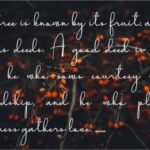 ree is known by its fruit, a
s deeds. A good deed is
he who sows courtesy
dship, and he who pl
ness gathers love. ....